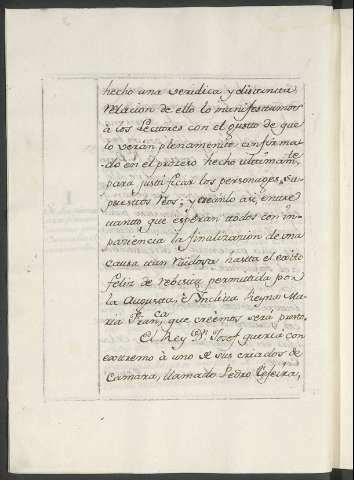 hecho una veridica y distincta
relacion de ello lo manifestamos
à los Lectores con el gusto de que
lo verán plenamente confirma-
do en el proceso hecho ultimamte
para justificar los personages su-
puestos Reos; y creanlo así, entre
tanto que esperan todos con im-
paciencia la finalizacion de una
causa tan ruidosa hasta el exito
feliz de permitida por
la Augusta, è Inclita Reyna Ma-
ria Franca, que creemos será pronto.
El Rey Dn. Josef queria con
extremo à uno de sus criados de
Camara, llamado Pedro